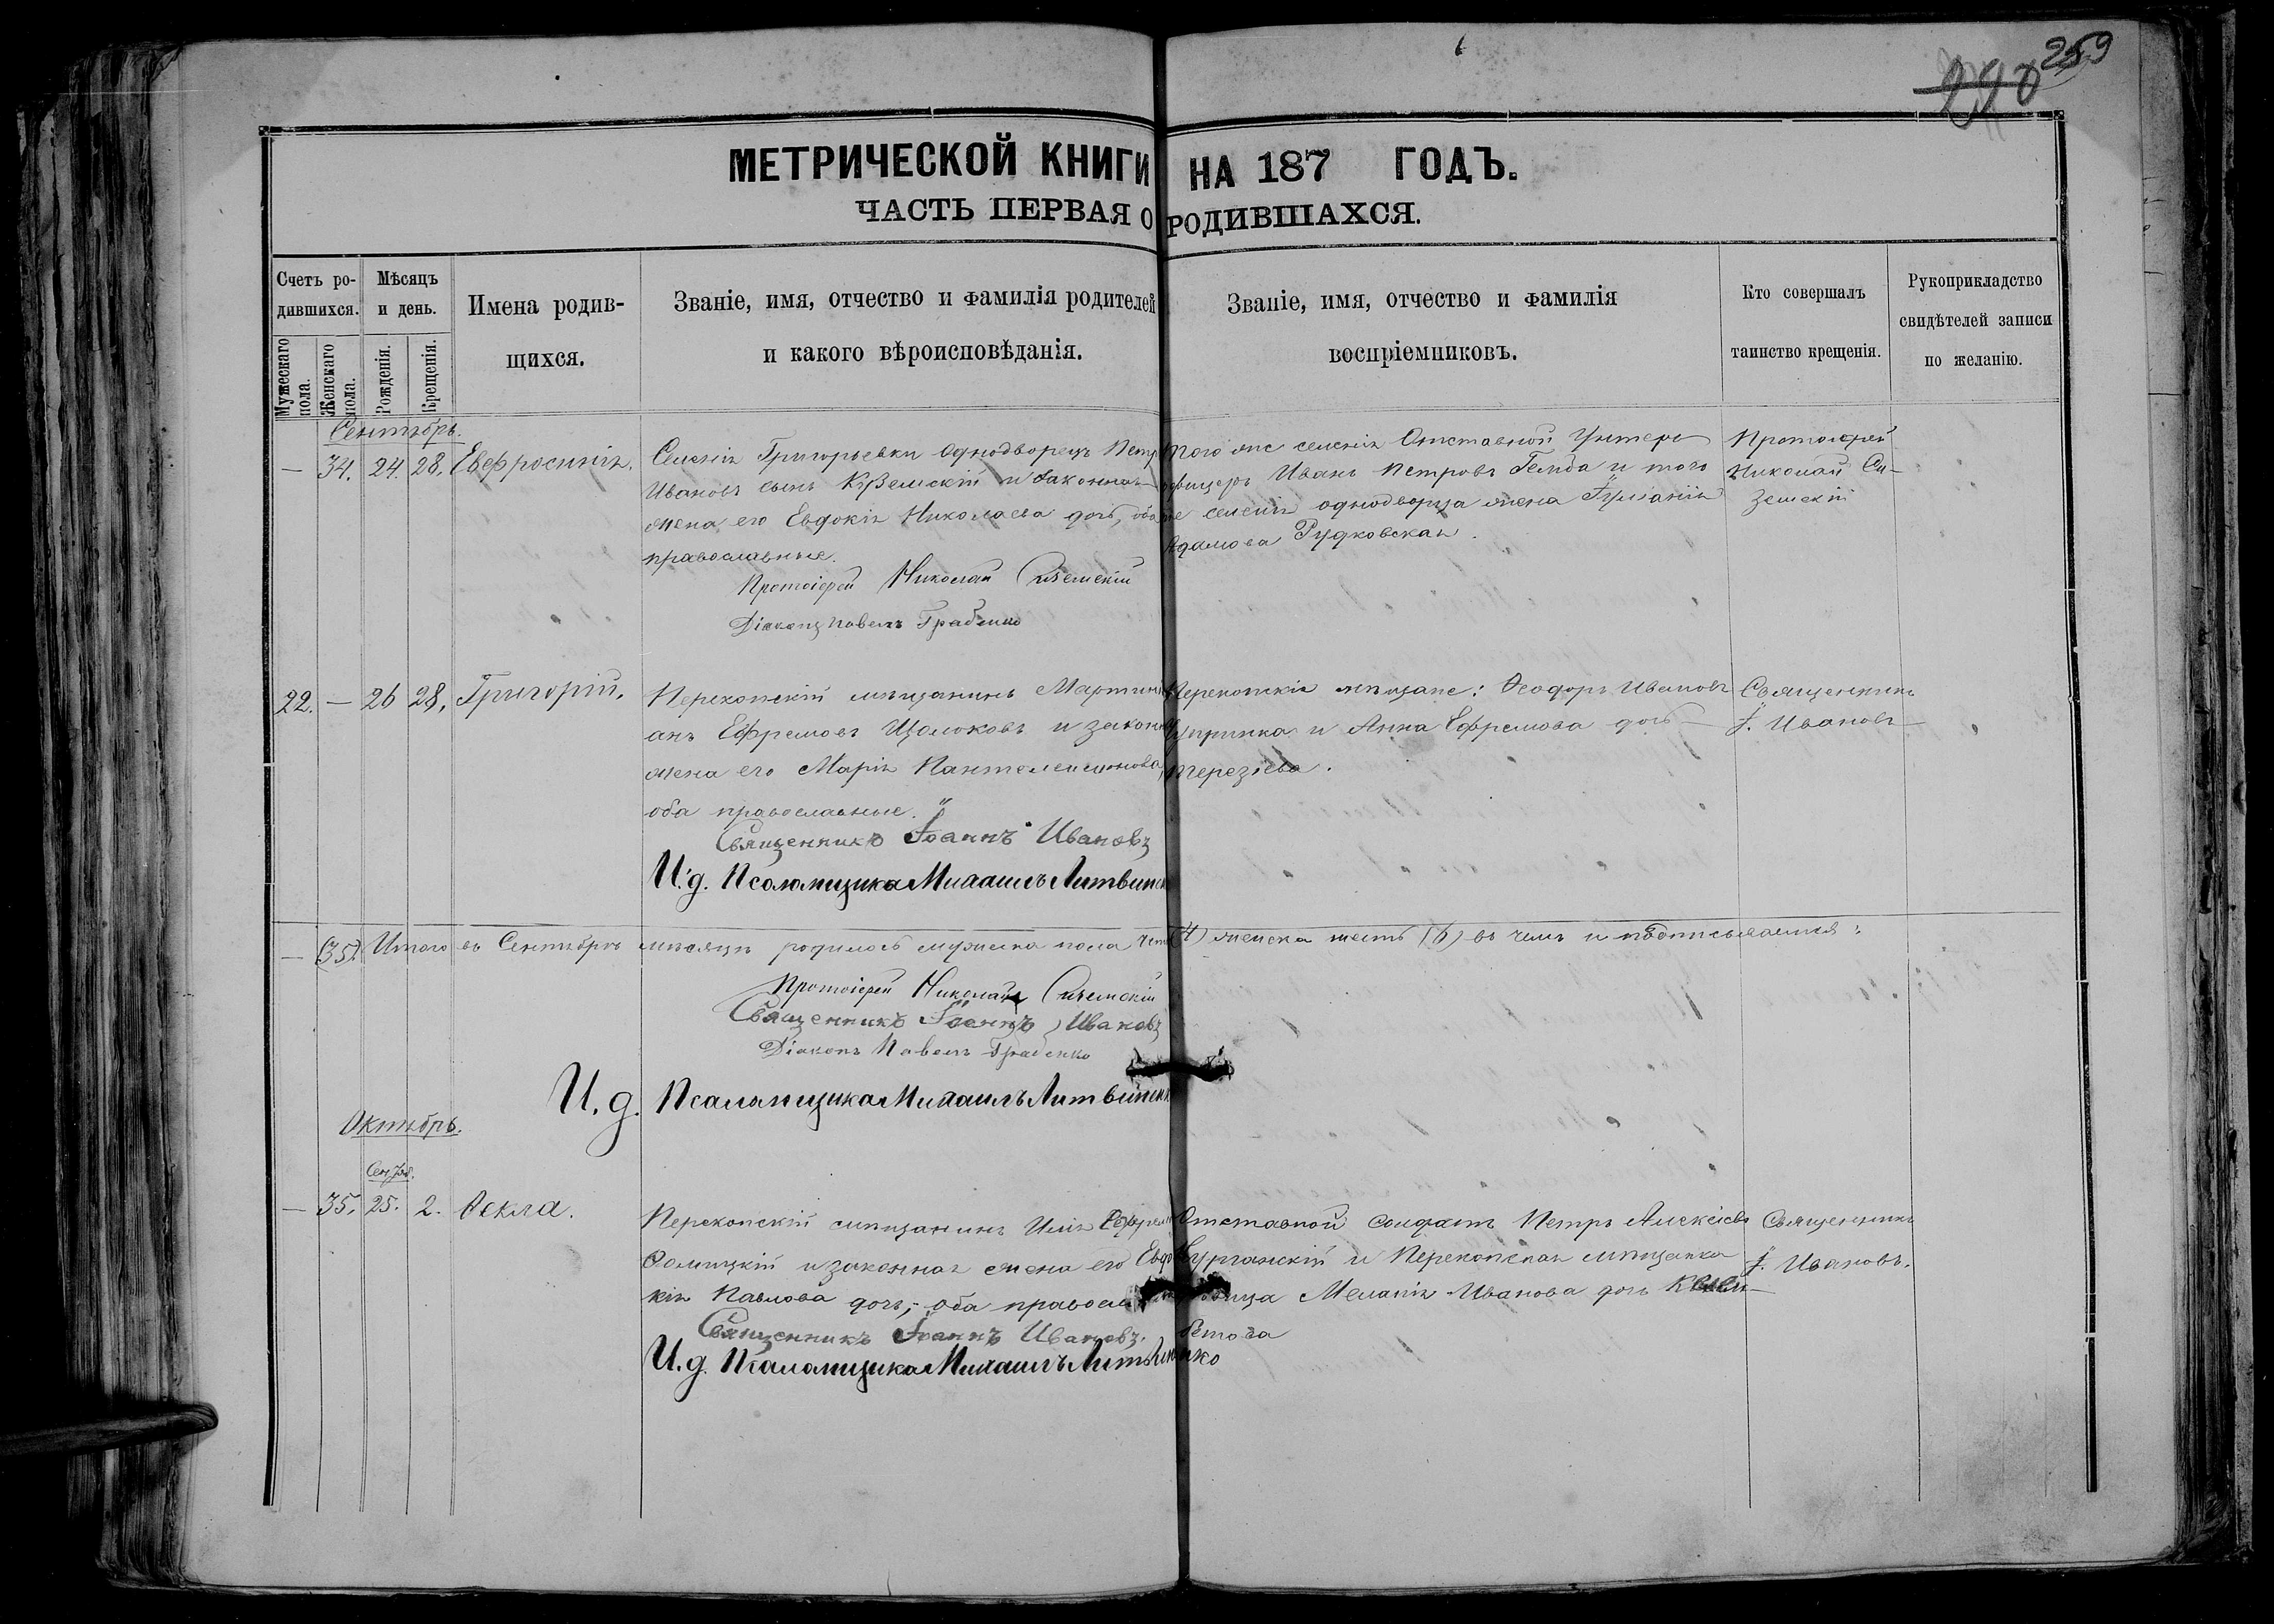 259
290
МЕТРИЧЕСКОЙ КНИГИ НА 187 ГОДЪ.
ЧАСТЬ ПЕРВАЯ О РОДИВШАХСЯ.
Счетъ ро-
дившихся.
Мужескаго пола.
Женскаго пола.
Мѣсяцъ
и день.
Рожденія.
Крещенія.
Имена родив-
щихся.
Званіе, имя, отчество и фамилія родителей
и какого вѣроисповѣданія.
Званіе, имя, отчество и фамилія
воспріемниковъ.
Кто совершалъ
таинство крещенія.
Рукоприкладство
свидѣтелей записи
по желанію.
Сентябрь.
— 34. 24. 28. Евфросинія.
Селенія Григорьевки однодворецъ Петр
Ивановъ сынъ и законная
жена его Евдокія Николаева дочь, оба
православные.
Протоіерей Николай
Діаконъ Павелъ
того же селенія Отставной Унтеръ
офицеръ Иванъ Петровъ и того
же селенія однодворца жена
Адамова Рудковская.
Протоіерей
Николай Си-
земскій
22. — 26 28. Григорій.
Перекопскій мѣщанинъ Мартин
анъ Ефремовъ и законн
жена его Марія Пантелеимонова,
оба православные.
Священникъ Іоаннъ Ивановъ
И.д. Псаломщика Михаилъ Литвинен
Перекопскіе мѣщане: Ѳеодоръ Ивановъ
и Анна Ефремова дочь
Терезіева.
Священникъ
І. Ивановъ
— (35). Итого въ Сентябрѣ мѣсяцѣ родилось мужеска пола чет (4) женска шесть (6) въ чемъ и подписываемся:
Протоіерей Николай
Священникъ Іоаннъ Ивановъ
Діаконъ Павелъ
И.д. Псаломщика Михаилъ Литвиненк
Октябрь.
Сентяб.
— 35. 25. 2. Ѳекла.
Перекопскій мѣщанинъ Илія Ефрем
и законная жена его Евдо
кія Павлова дочь, оба правосл
Священникъ Іоаннъ Ивановъ.
И.д. Псаломщика Михаилъ Литвиненко
Отставной солдатъ Петръ Алексіевъ
и Перекопская мѣщанка
Меланія Иванова дочь
бетова
Священникъ
І. Ивановъ.